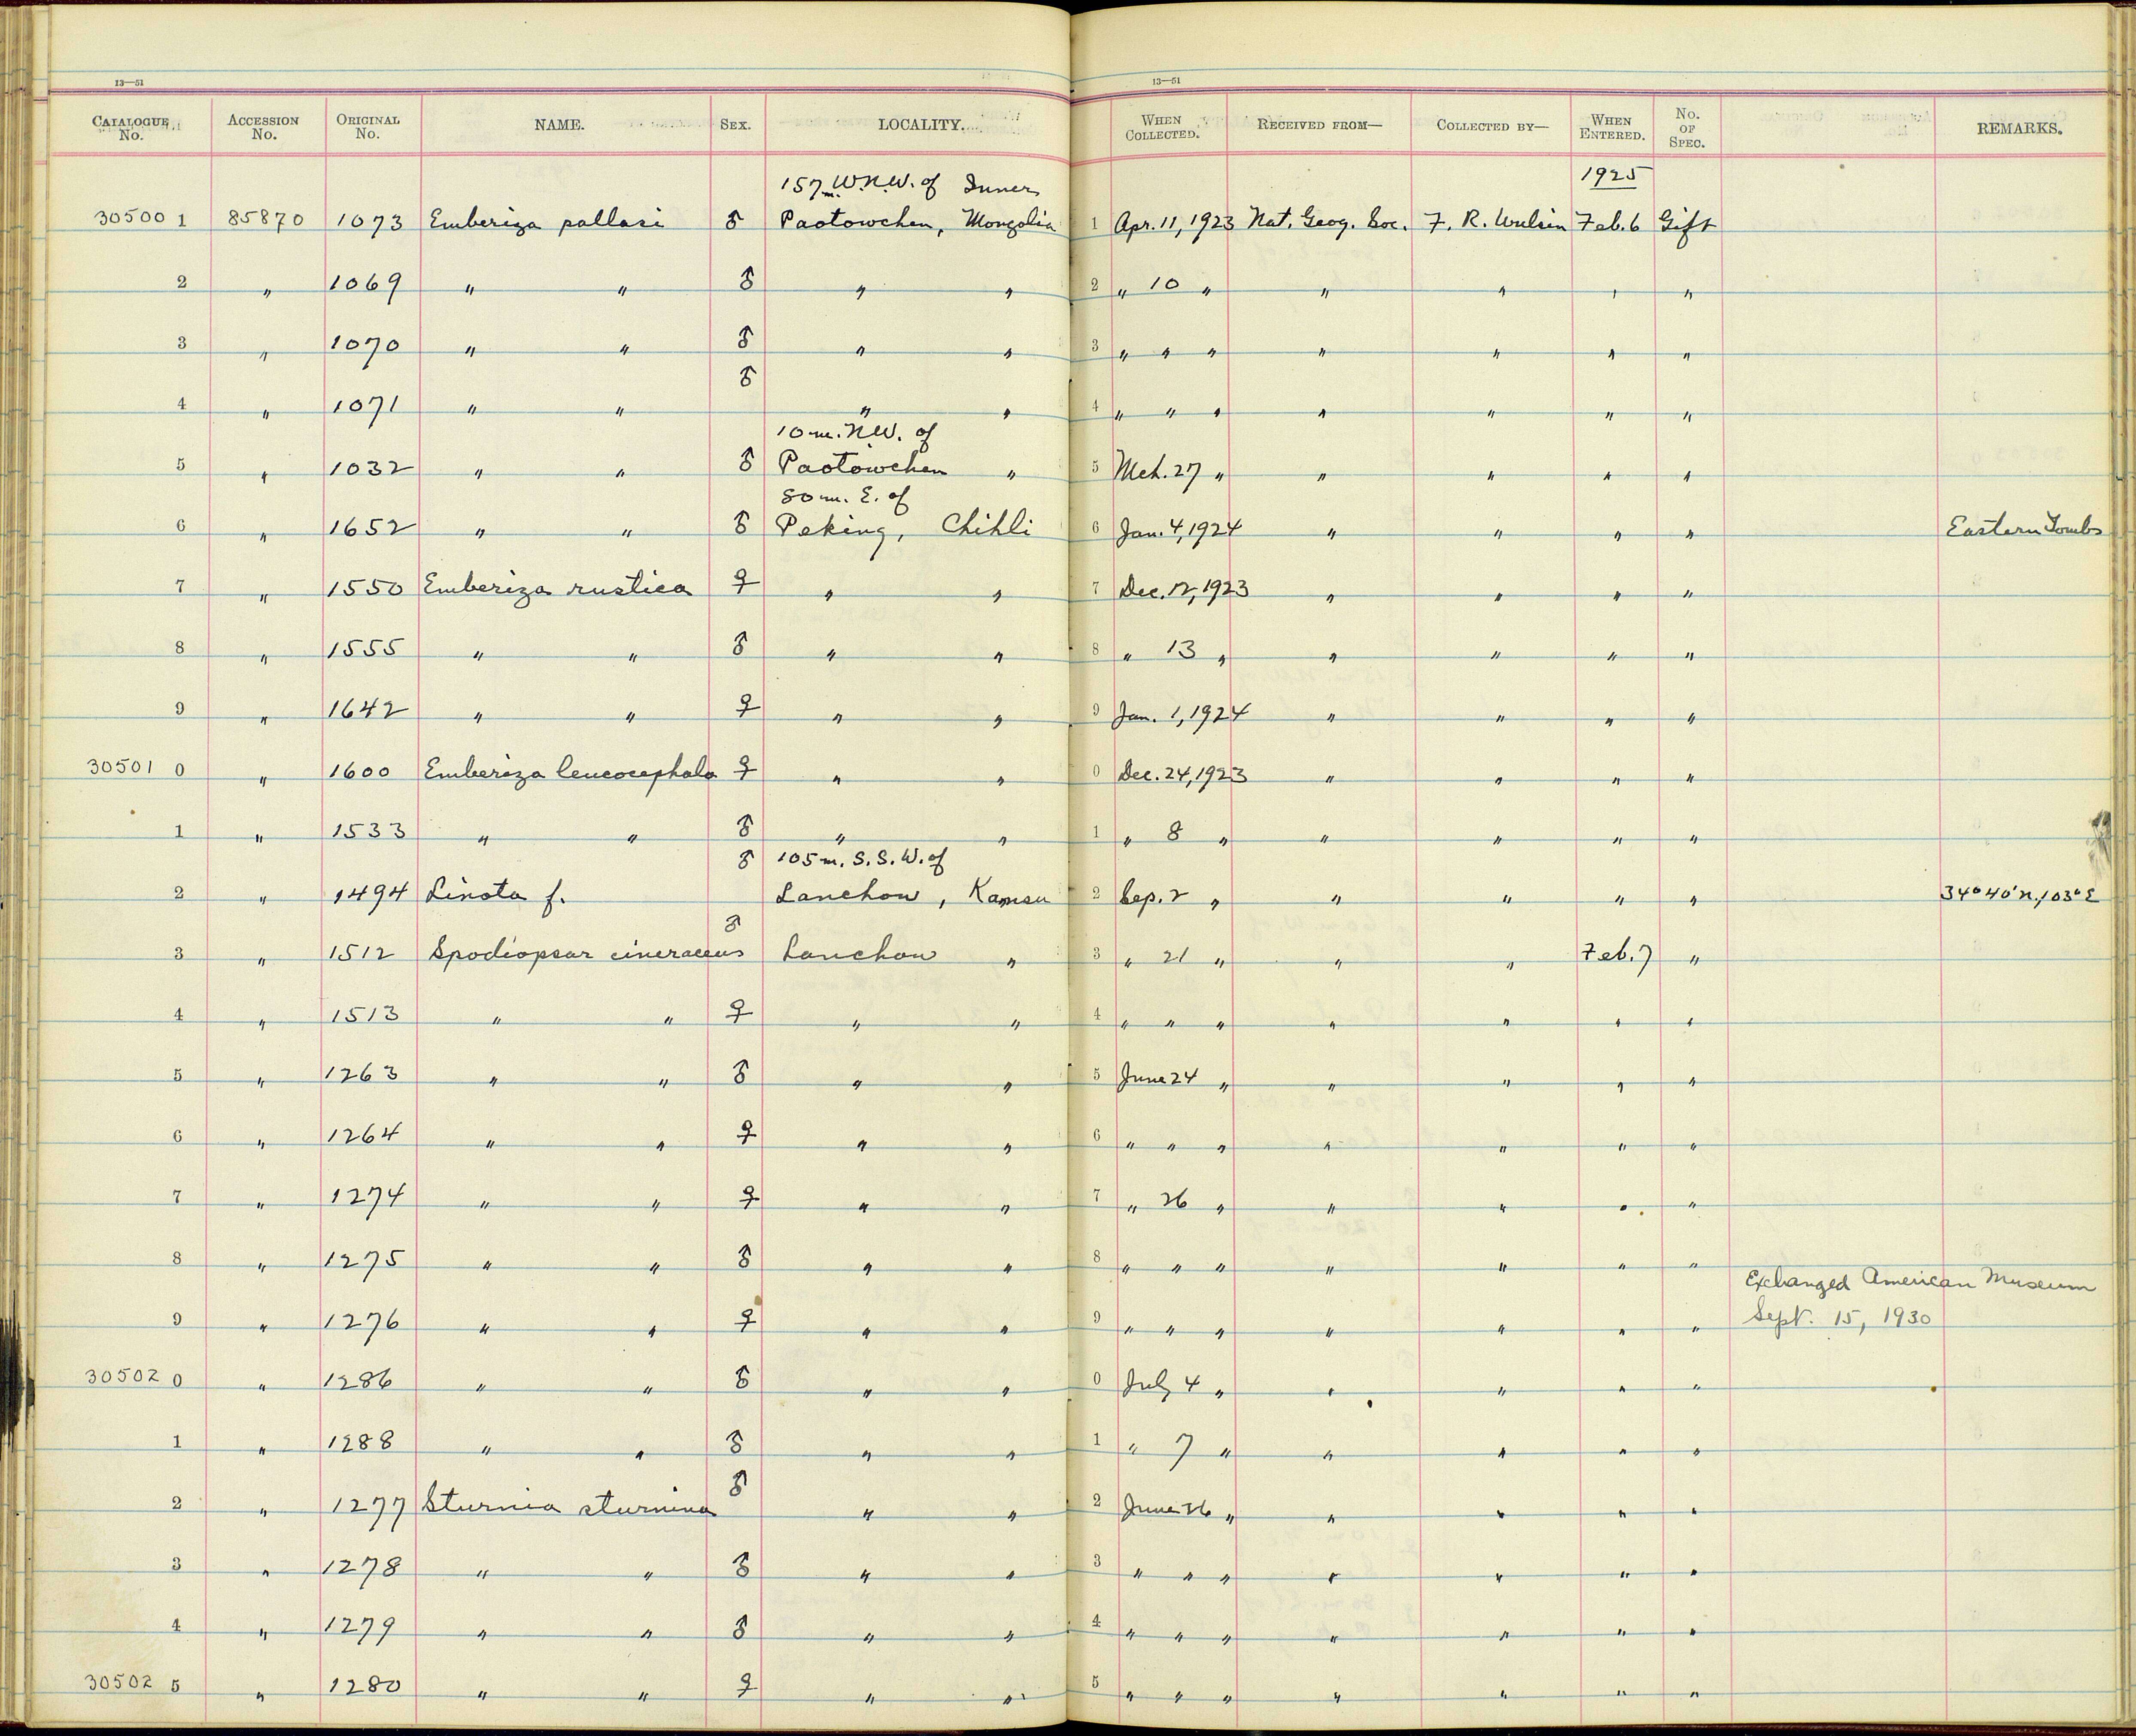 13—51 13—51
CATALOGUE No. ACCESSION No. ORIGINAL No. NAME. SEX. LOCALITY. WHEN COLLECTED. RECEIVED FROM— COLLECTED BY— WHEN ENTERED. No. OF SPEC. REMARKS.
157 m. W.N.W. of Inner 1925
30500 1 85870 1073 Emberiza pallasi ♂ Paotowchen, Mongolia 1 Apr. 11, 1923 Nat. Geog. Soc. F. R. Wulsin Feb. 6 Gift
2 " 1069 " " ♂ " " 2 " 10 " " " " "
3 " 1070 " " ♂ " " 3 " " " " " " "
4 " 1071 " " ♂ " " 4 " " " " " " "
10 m. N.W. of
5 " 1032 " " ♂ Paotowchen " 5 Mch. 27 " " " " "
80 m. E. of
6 " 1652 " " ♂ Peking, Chihli 6 Jan. 4, 1924 " " " " Eastern Tombs
7 " 1550 Emberiza rustica ♀ " " 7 Dec. 12, 1923 " " " "
8 " 1555 " " ♂ " " 8 " 13 " " " " "
9 " 1642 " " ♀ " " 9 Jan. 1, 1924 " " " "
30501 0 " 1600 Emberiza leucocephala ♀ " " 0 Dec. 24, 1923 " " " "
1 " 1533 " " ♂ " " 1 " 8 " " " " "
105 m. S.S.W. of
2 " 1494 Linota f. ♂ Lanchow, Kansu 2 Sep. 2 " " " " " 34° 40' N, 103° E
3 " 1512 Spodiopsar cineraceus ♂ Lanchow " 3 " 21 " " " Feb. 7 "
4 " 1513 " " ♀ " " 4 " " " " " " "
5 " 1263 " " ♂ " " 5 June 24 " " " " "
6 " 1264 " " ♀ " " 6 " " " " " " "
7 " 1274 " " ♀ " " 7 " 26 " " " " "
8 " 1275 " " ♂ " " 8 " " " " " " "
Exchanged American Museum
9 " 1276 " " ♀ " " 9 " " " " " " " Sept. 15, 1930
30502 0 " 1286 " " ♂ " " 0 July 4 " " " " "
1 " 1288 " " ♂ " " 1 " 7 " " " " "
2 " 1277 Sturnia sturnina ♂ " " 2 June 26 " " " " "
3 " 1278 " " ♂ " " 3 " " " " " " "
4 " 1279 " " ♂ " " 4 " " " " " " "
30502 5 " 1280 " " ♀ " " 5 " " " " " " "